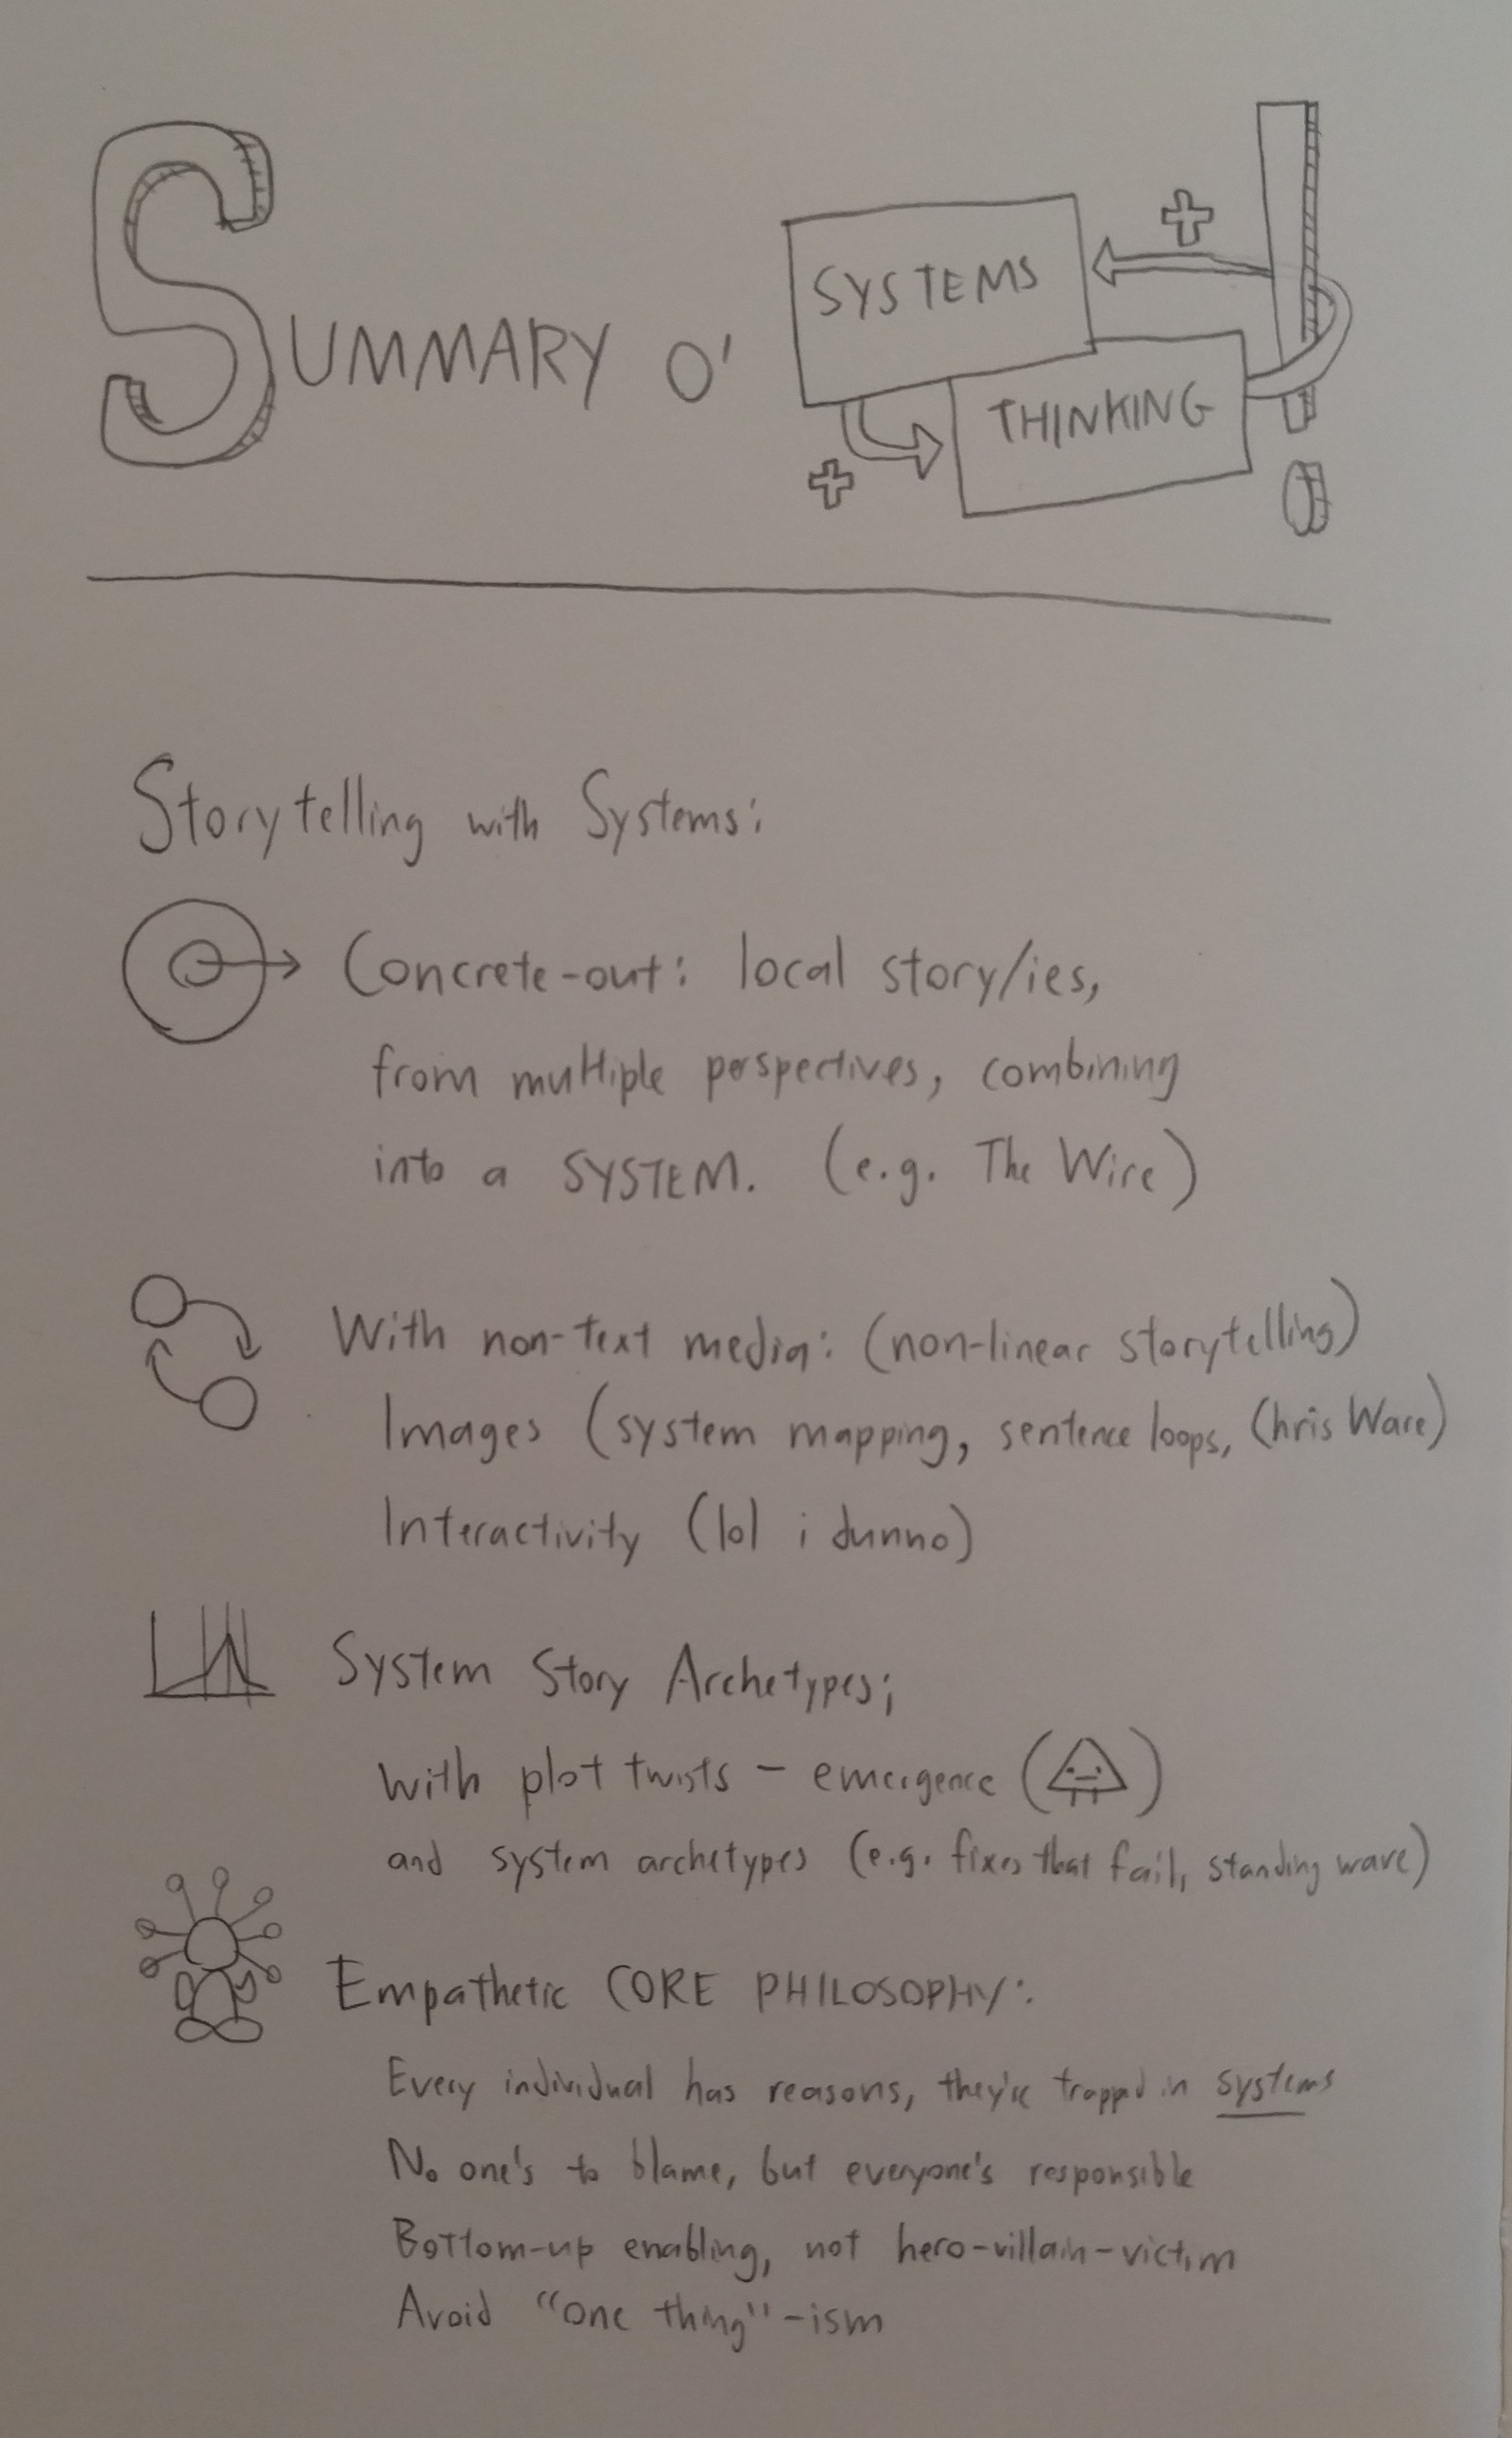 SUMMARY O' SYSTEMS THINKING!
+
+
Storytelling with Systems:
Concrete-out: local story/ies,
from multiple perspectives, combining
into a SYSTEM. (e.g. The Wire)
With non-text media: (non-linear storytelling)
Images (system mapping, sentence loops, Chris Ware)
Interactivity (lol i dunno)
System Story Archetypes;
with plot twists - emergence ( )
and system archetypes (e.g. fixes that fail, standing wave)
Empathetic CORE PHILOSOPHY:
Every individual has reasons, they're trapped in systems
No one's to blame, but everyone's responsible
Bottom-up enabling, not hero-villain-victim
Avoid "one thing"-ism